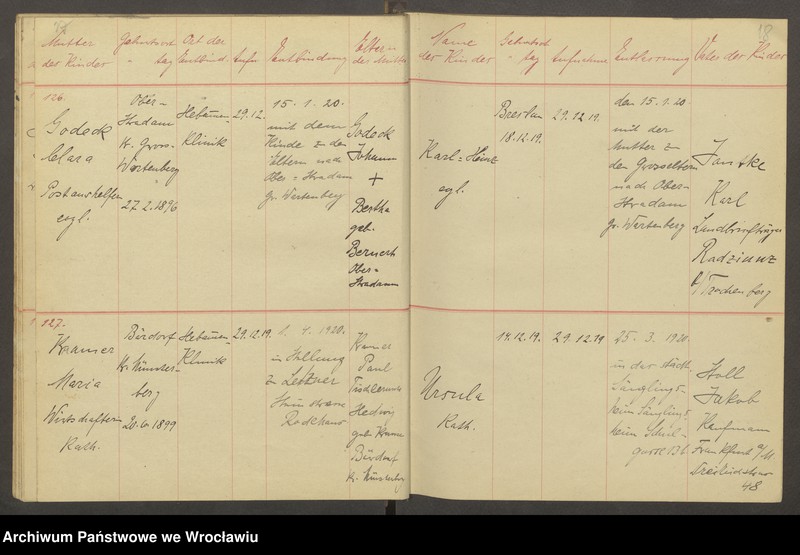 Mutter
der Kinder
Geburtsort
" tag
Ort der
Entbind.
Aufn.
Entbindung
Eltern
der Mutter
Name
der Kinder
Geburtsort
" tag
Aufnahme
Entlassung
Vater der Kinder
18
126.
Godeck
Clara
Postaushelferin
egl.
Ober-
Stradam
Kr. Gross-
Wartenberg
27.2.1896
Hebammen
Klinik
29.12.
15.1.20.
mit dem
Kinde z. den
Eltern nach
Ober-Stradam
Gr. Wartenberg
Godeck
Johann
+
Bertha
geb.
Ober-
Stradam
Karl-Heinz
egl.
Breslau
18.12.19.
29.12.19.
den 15.1.20.
mit der
Mutter z.
den Grosseltern
nach Ober-
Stradam
Gr. Wartenberg
Karl
Landbriefträger
Radziunz
b/Trachenberg
127.
Kramer
Maria
Wirtschafterin
Kath.
Bärdorf
Kr. Münster-
berg
20.6.1899
Hebammen
Klinik
29.12.19.
1920.
in Stellung
z.
Kramer
Paul
Hedwig
geb.
Bärdorf
Kr. Münsterberg
Ursula
Kath.
14.12.19.
29.12.19
25.3.1920
in das städt.
Säuglings-
heim Säuglings-
heim
gasse
Jakob
Kaufmann
Frankfurt a/M
48
Archiwum Państwowe we Wrocławiu